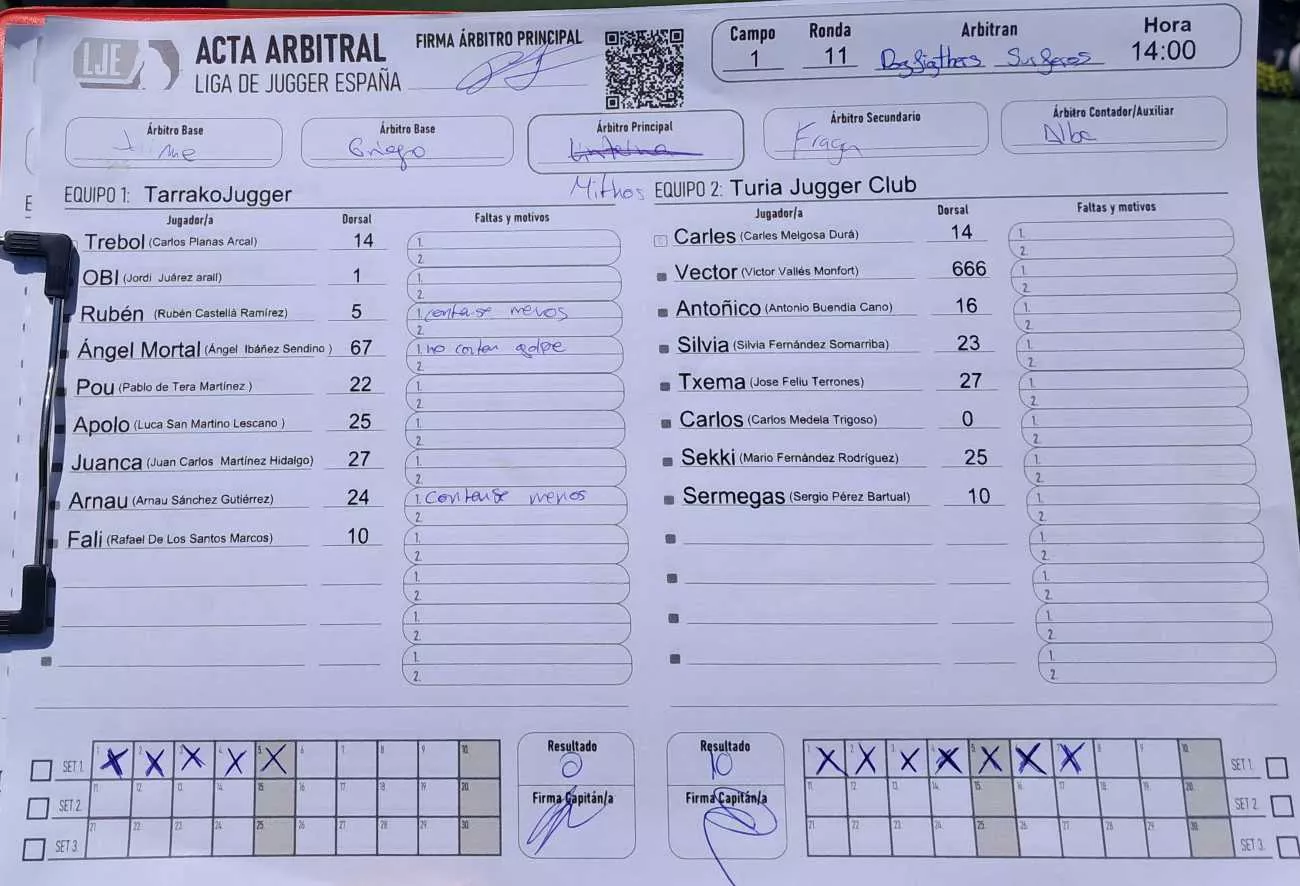 LJE
ACTA ARBITRAL
LIGA DE JUGGER ESPAÑA
FIRMA ÁRBITRO PRINCIPAL
Campo Ronda Arbitran Hora
1 11 14:00
Árbitro Base Árbitro Base Árbitro Principal Árbitro Secundario Árbitro Contador/Auxiliar
Griego Fraga Alba
Mithos
EQUIPO 1: TarrakoJugger
Jugador/a Dorsal Faltas y motivos
Trebol (Carlos Planas Arcal) 14 1.
2.
OBI (Jordi Juárez arall) 1 1.
2.
Rubén (Rubén Castellà Ramírez) 5 1. contarse menos
2.
Ángel Mortal (Ángel Ibáñez Sendino ) 67 1. no contar golpe
2.
Pou (Pablo de Tera Martínez ) 22 1.
2.
Apolo (Luca San Martino Lescano ) 25 1.
2.
Juanca (Juan Carlos Martínez Hidalgo) 27 1.
2.
Arnau (Arnau Sánchez Gutiérrez) 24 1. Contarse menos
2.
Fali (Rafael De Los Santos Marcos) 10 1.
2.
1.
2.
1.
2.
1.
2.
EQUIPO 2: Turia Jugger Club
Jugador/a Dorsal Faltas y motivos
Carles (Carles Melgosa Durá) 14 1.
2.
Vector (Victor Vallés Monfort) 666 1.
2.
Antoñico (Antonio Buendia Cano) 16 1.
2.
Silvia (Silvia Fernández Somarriba) 23 1.
2.
Txema (Jose Feliu Terrones) 27 1.
2.
Carlos (Carlos Medela Trigoso) 0 1.
2.
Sekki (Mario Fernández Rodríguez) 25 1.
2.
Sermegas (Sergio Pérez Bartual) 10 1.
2.
1.
2.
1.
2.
1.
2.
1.
2.
SET 1. 1 2 3 4 5 6 7 8 9 10
X X X X X
SET 2. 11 12 13 14 15 16 17 18 19 20
SET 3. 21 22 23 24 25 26 27 28 29 30
Resultado
0
Firma Capitán/a
Resultado
10
Firma Capitán/a
1 2 3 4 5 6 7 8 9 10 SET 1.
X X X X X X X
11 12 13 14 15 16 17 18 19 20 SET 2.
21 22 23 24 25 26 27 28 29 30 SET 3.